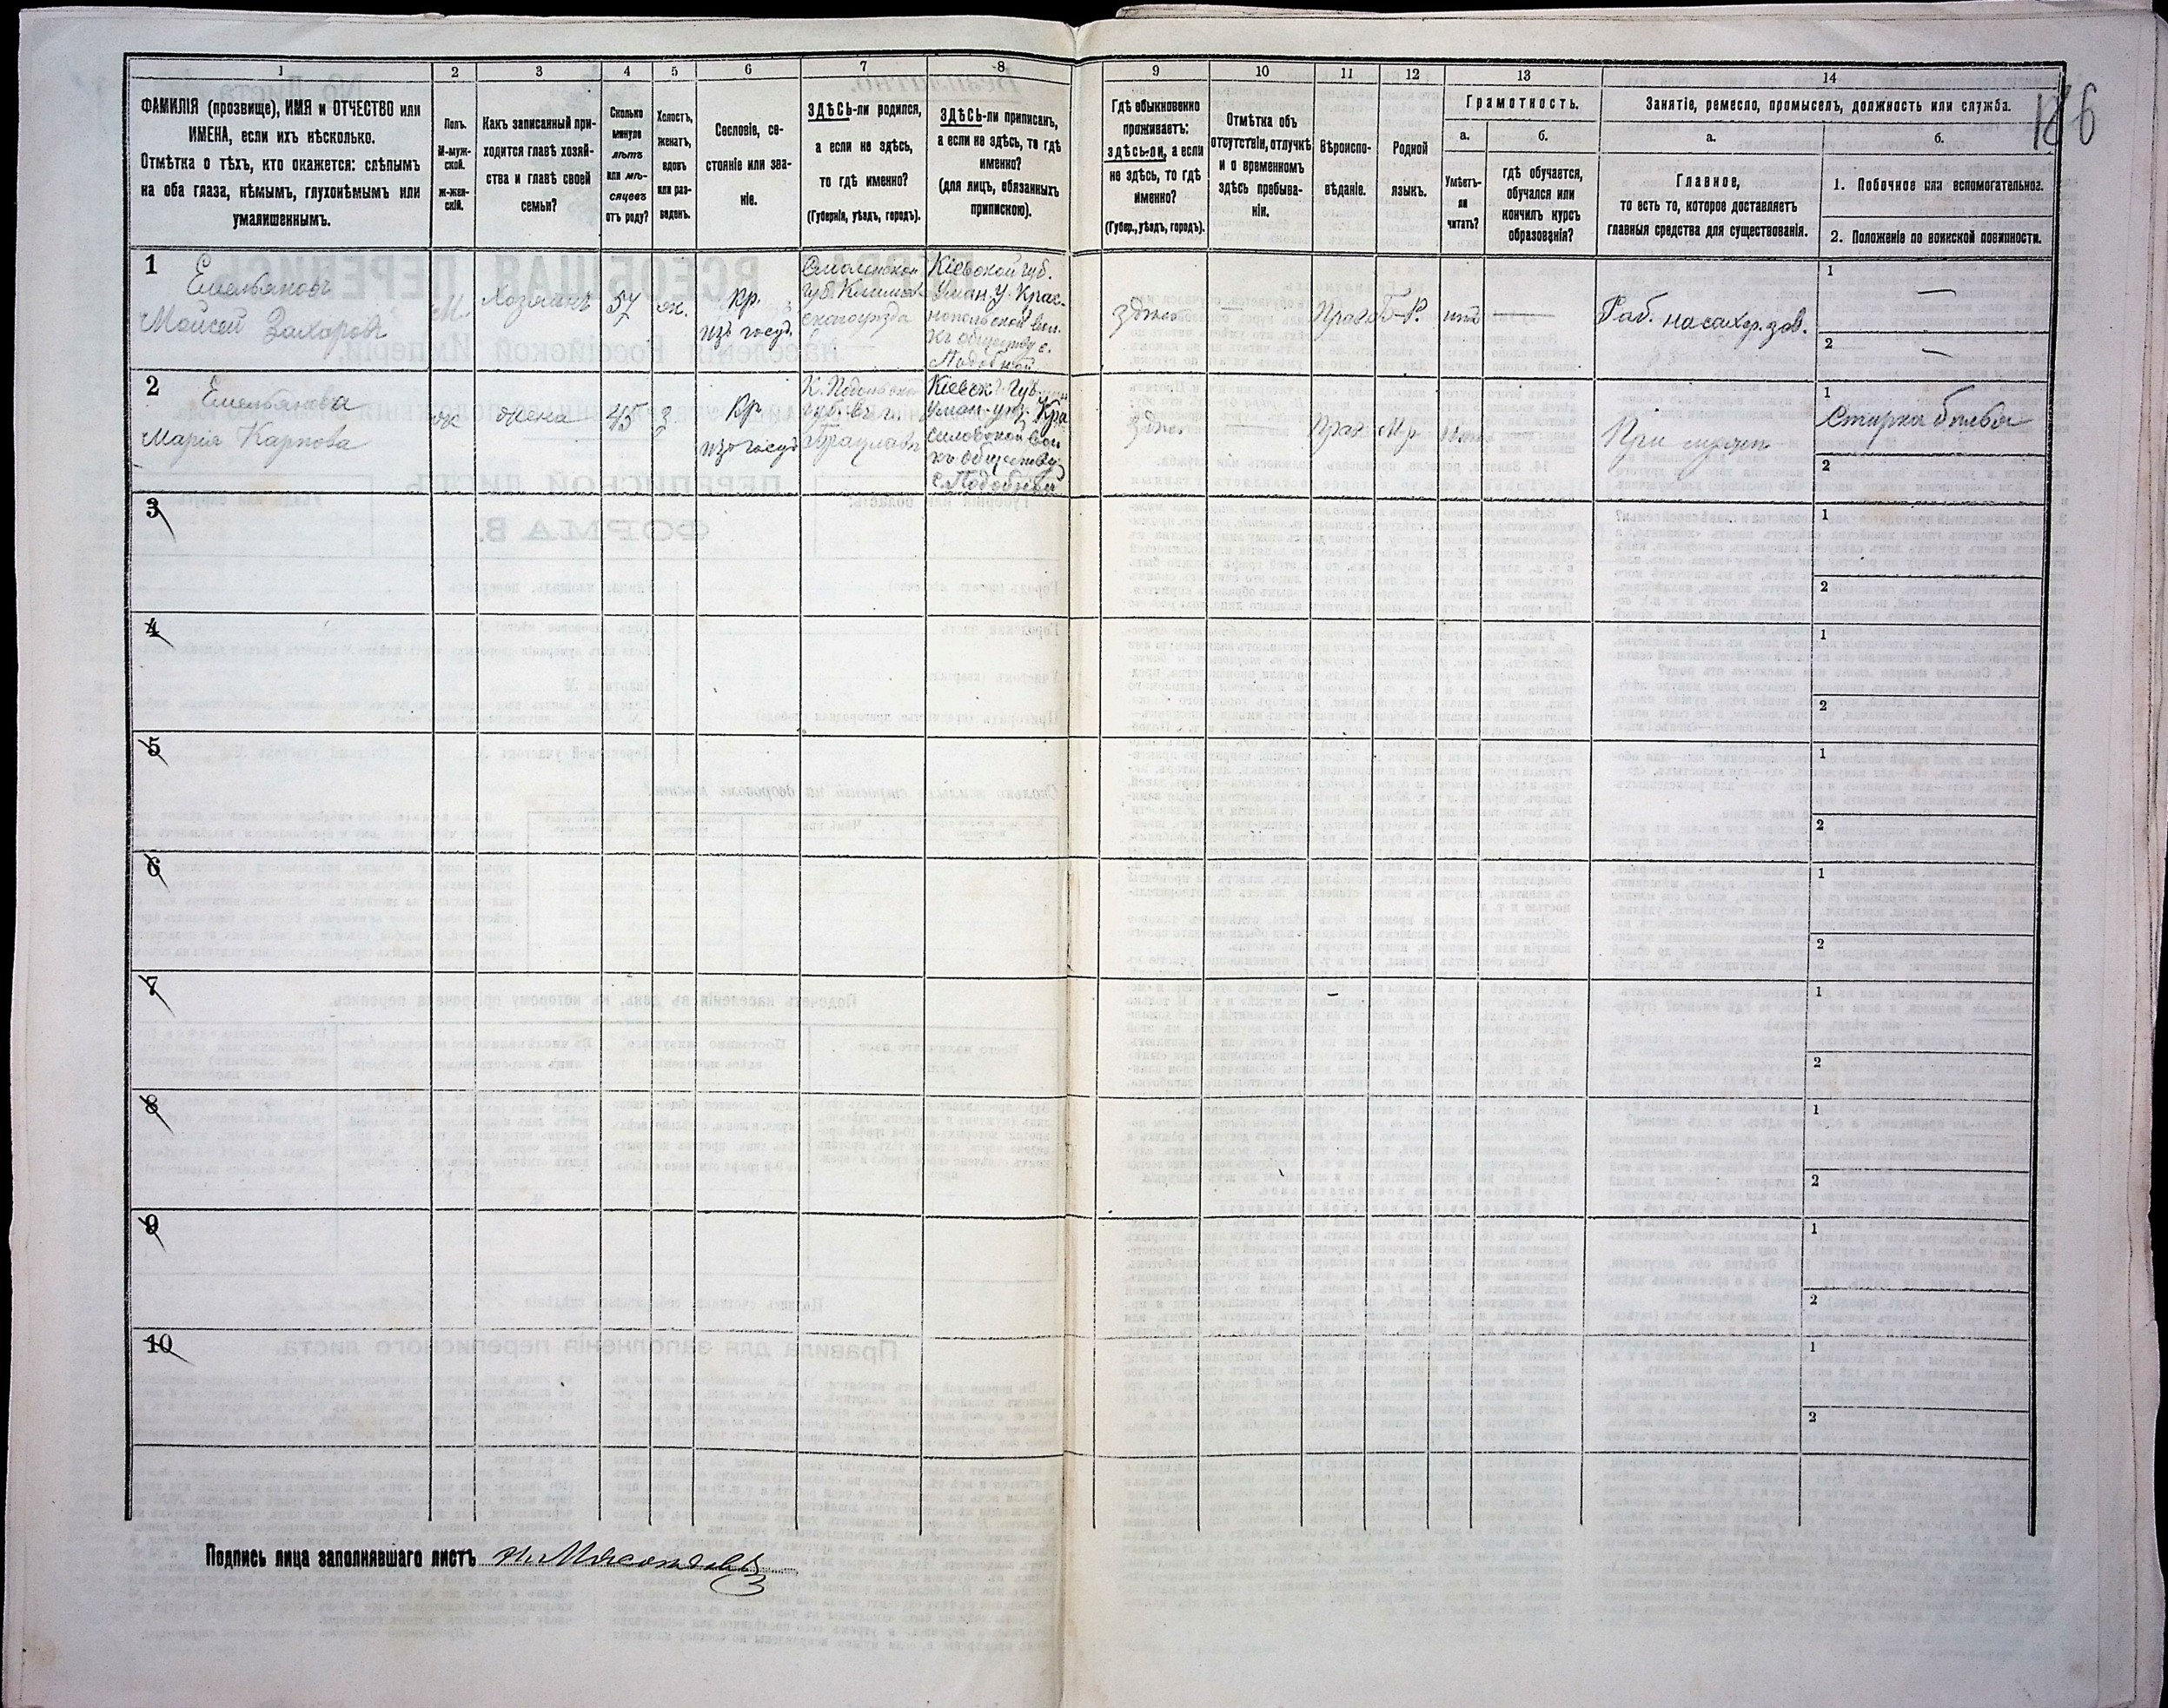 1
2
3
4
5
6
7
8
9
10
11
12
13
14
ФАМИЛІЯ (прозвище), ИМЯ и ОТЧЕСТВО или
ИМЕНА, если ихъ нѣсколько.
Отмѣтка о тѣхъ, кто окажется: слѣпымъ
на оба глаза, нѣмымъ, глухонѣмымъ или
умалишеннымъ.
Полъ.
М-муж-
ской.
ж-жен-
скій.
Какъ записанный при-
ходится главѣ хозяй-
ства и главѣ своей
семьи?
Сколько
минуло
лѣтъ
или мѣ-
сяцевъ
отъ роду?
Холостъ,
женатъ,
вдовъ
или раз-
веденъ.
Сословіе, со-
стояніе или зва-
ніе.
ЗДѢСЬ-ли родился,
а если не здѣсь,
то гдѣ именно?
(Губернія, уѣздъ, городъ).
ЗДѢСЬ-ли приписанъ,
а если не здѣсь, то гдѣ
именно?
(для лицъ, обязанныхъ
припискою).
Гдѣ обыкновенно
проживаетъ:
здѣсь-ли, а если
не здѣсь, то гдѣ
именно?
(Губер., уѣздъ, городъ).
Отмѣтка объ
отсутствіи, отлучкѣ
и о временномъ
здѣсь пребыва-
ніи.
Вѣроиспо-
вѣданіе.
Родной
языкъ.
Грамотность.
а.
Умѣетъ-
ли
читать?
б.
гдѣ обучается,
обучался или
кончилъ курсъ
образованія?
Занятіе, ремесло, промыселъ, должность или служба.
186
а.
Главное,
то есть то, которое доставляетъ
главныя средства для существованія.
б.
1. Побочное или вспомогательное.
2. Положеніе по воинской повинности.
1
Емельяновъ
Моисей Захаровъ
М.
Хозяинъ
57
ж.
Кр.
изъ госуд.
Смоленской
губ.
уѣзда
Кіевской губ.
Уман. у. Крас-
нопольской вол.
къ обществу с.
Подобной
здѣсь
—
Прав
Б-Р.
нѣтъ
—
Раб. на сахар. зав.
1
—
2
—
2
Емельянова
Марія Карпова
ж
жена
45
з.
Кр
изъ госуд
К. Подольской
губ. въ м.
Браулавѣ
Кіевск. Губ.
Уман. уѣз. Кра
вол
къ обществу
с. Подобной
здѣсь
—
Прав
Мр
нѣтъ
При мужѣ
1
Стирка бѣлья
2
3
1
2
4
1
2
5
1
2
6
1
2
7
1
2
8
1
2
9
1
2
10
1
2
Подпись лица заполнявшаго листъ